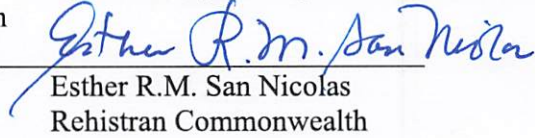 n
Esther R.M. San Nicolas
Esther R.M. San Nicolas
Rehistran Commonwealth